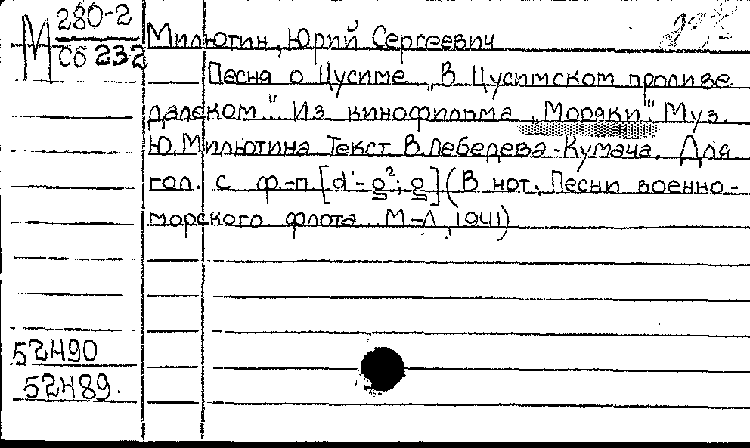 М 280-2
Сб 232
Милютин, Юрий Сергеевич
Песня о Цусиме „В Цусимском проливе
далеком". Из кинофильма „Моряки". Муз.
Ю.Милютина Текст В.Лебедева-Кумача. Для
гол. с ф-п. [d¹-g²; g] (В нот. Песни военно-
морского флота. М-Л, 1941)
52490
52489.